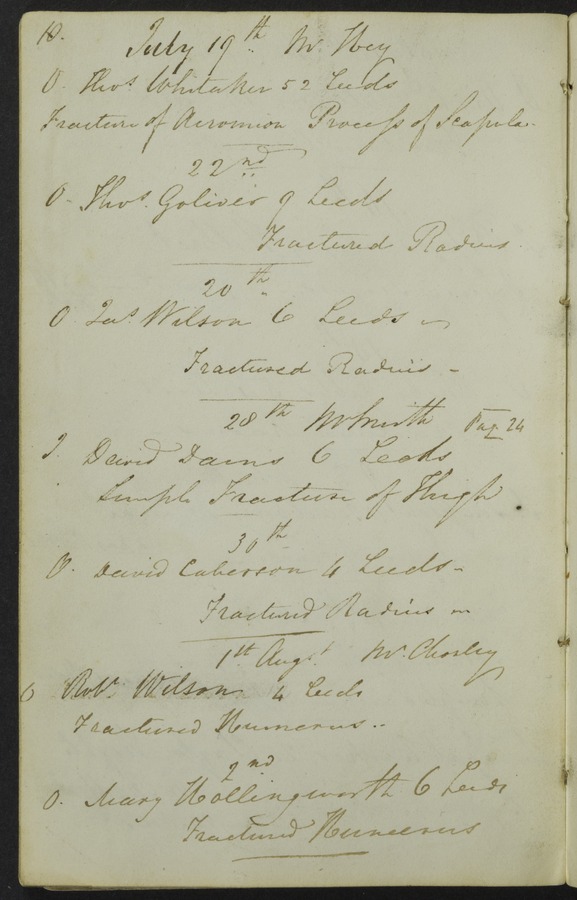 10.
July 19th Mr Hey
O. Thos. Whitaker 52 Leeds
Fracture of Acromion Process of Scapula.
22nd
O. Thos. Goliver 9 Leeds
Fractured Radius.
20th
O Jas. Wilson 6 Leeds
Fractured Radius -
28th Mr Smith Pag. 24
I. David Dains 6 Leeds
Simple Fracture of Thigh
30th
O. David Caberson 4 Leeds -
Fractured Radius
1th Augst. Mr. Chorley
O Robt. Wilson 4 Leeds
Fractured Humerus..
2nd
O. Mary Hollingworth 6 Leeds
Fractured Humerus